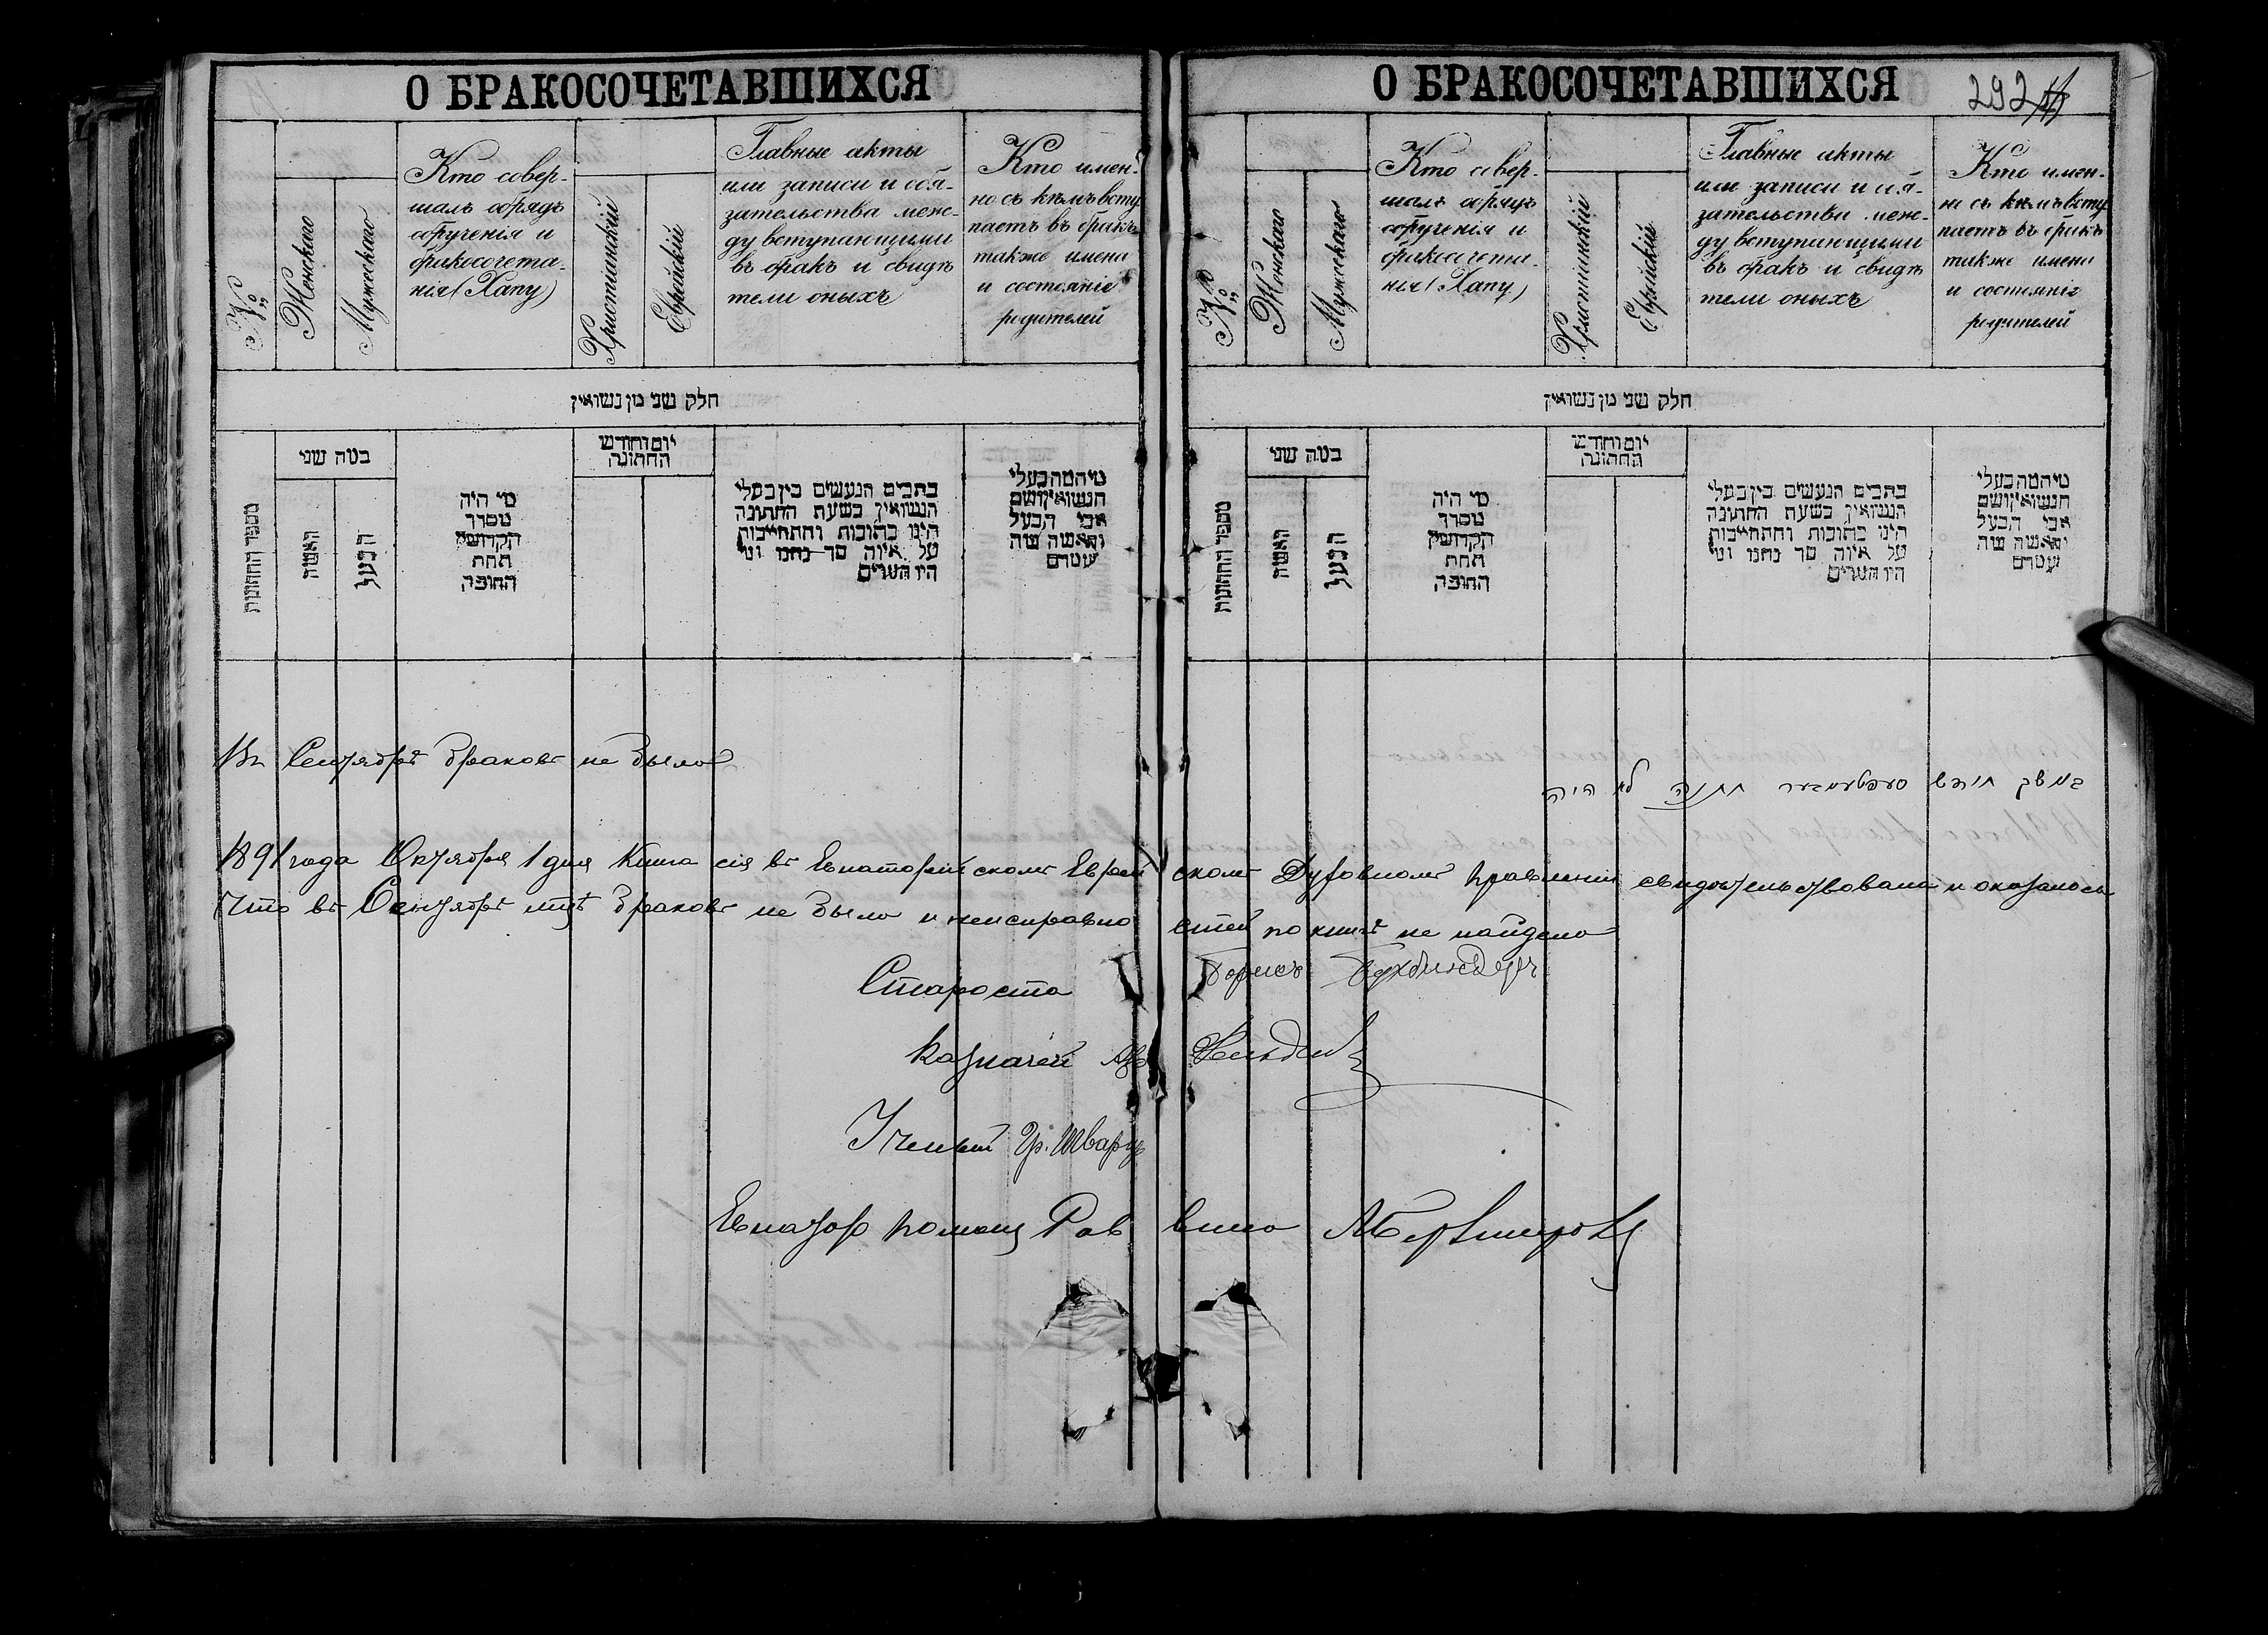 О БРАКОСОЧЕТАВШИХСЯ
№
Женского
Мужеского
Кто совер-
шалъ обрядъ
обрученія и
бракосочета-
нія (Хапу)
Христіанскій
Еврейскій
Главные акты
или записи и обя-
зательства меж-
ду вступающими
въ бракъ и свидѣ
тели оныхъ
Кто имен-
но съ кѣмъ всту
паетъ въ бракъ
также имена
и состояніе
родителей
חלק שני מן נשואין
מספר החתונות
כמה שני
האשה
הבעל
מי היה
מסדר
הקדושין
תחת
החופה
יום וחודש
החתונה
כתבים הנעשים בין בעלי
הנשואין בשעת החתונה
הינו כתובות והתחייבות
על איזה סך נתנו ומי
היו העדים
מי המה בעלי
הנשואין ושם
אבי הבעל
והאשה ומה
מעמדם
Въ Сентябрѣ браковъ не было
1891 года Октября 1 дня Книга сія въ Евпаторійскомъ Еврей
Что въ Сентябрѣ мцѣ браковъ не было и неисправно
Староста
Казначей
Ученый Гр. Шварцъ
Евпатор помощ Рав
О БРАКОСОЧЕТАВШИХСЯ
292
№
Женского
Мужеского
Кто совер-
шалъ обрядъ
обрученія и
бракосочета-
нія (Хапу)
Христіанскій
Еврейскій
Главные акты
или записи и обя-
зательства меж-
ду вступающими
въ бракъ и свидѣ
тели оныхъ
Кто имен-
но съ кѣмъ всту
паетъ въ бракъ
также имена
и состояніе
родителей
חלק שני מן נשואין
מספר החתונות
כמה שני
האשה
הבעל
מי היה
מסדר
הקדושין
תחת
החופה
יום וחודש
החתונה
כתבים הנעשים בין בעלי
הנשואין בשעת החתונה
הינו כתובות והתחייבות
על איזה סך נתנו ומי
היו העדים
מי המה בעלי
הנשואין ושם
אבי הבעל
והאשה ומה
מעמדם
במשך חודש סעפטעמבער חתנה לא היה
скомъ Духовномъ Правленіи свидѣтельствована и оказалось
стей по книгѣ не найдено
Борисъ Бухбиндеръ
вина